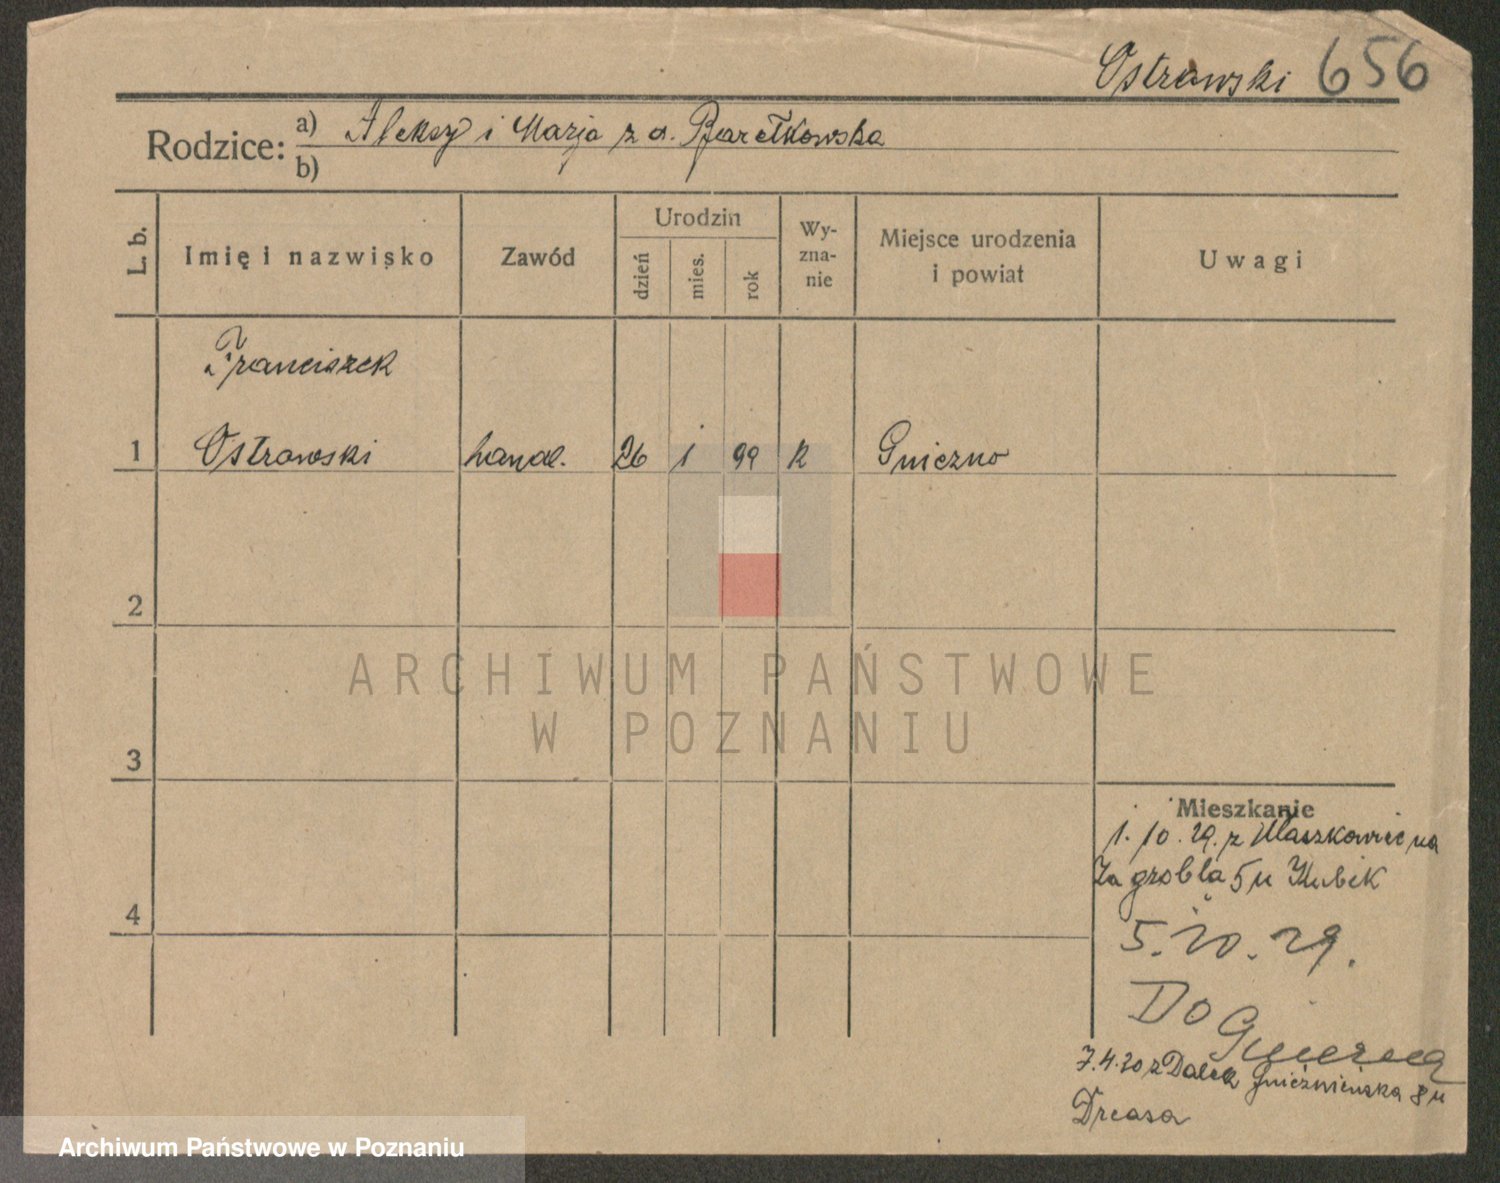 Ostrowski 656
Rodzice: a) Aleksy i Marja z d.
b)
L. b.
Imię i nazwisko
Zawód
Urodzin
dzień
mies.
rok
Wy-
zna-
nie
Miejsce urodzenia
i powiat
Uwagi
Franciszek
1 Ostrowski handl. 26 1 99 k Gniezno
2
3
4
ARCHIWUM PAŃSTWOWE
W POZNANIU
Mieszkanie
1. 10. 29. z na
Zagrobla 5 u Kubik
5. 10. 29.
Do Gniezna
7.4.30 z Dalek Gnieźnieńska 8 u
Archiwum Państwowe w Poznaniu